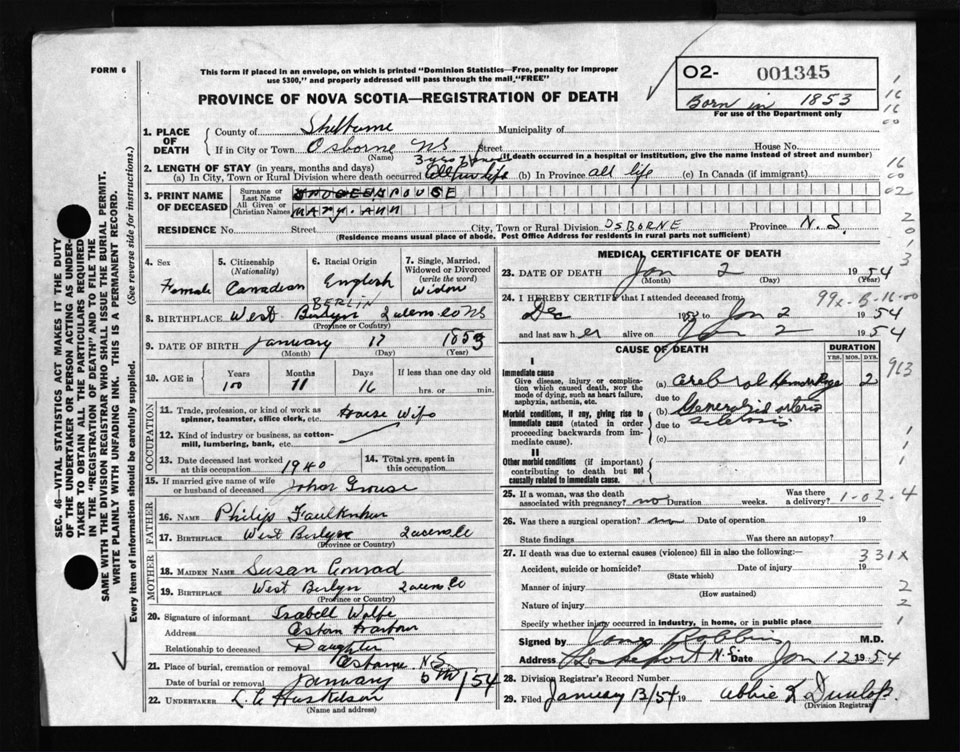 FORM 6
This form if placed in an envelope, on which is printed "Dominion Statistics—Free, penalty for improper
use $300," and properly addressed will pass through the mail, "FREE"
O2- 001345
Born in 1853
For use of the Department only
PROVINCE OF NOVA SCOTIA—REGISTRATION OF DEATH
1. PLACE OF DEATH
County of Shelburne Municipality of
If in City or Town Osborne N.S. Street House No.
(Name) (If death occurred in a hospital or institution, give the name instead of street and number)
2. LENGTH OF STAY (in years, months and days)
(a) In City, Town or Rural Division where death occurred (b) In Province all life (c) In Canada (if immigrant)
3. PRINT NAME OF DECEASED
Surname or Last Name CROUSE
All Given or Christian Names MARY ANN
RESIDENCE No. Street City, Town or Rural Division OSBORNE Province N.S.
(Residence means usual place of abode. Post Office Address for residents in rural parts not sufficient)
4. Sex
Female
5. Citizenship (Nationality)
Canadian
6. Racial Origin
English
7. Single, Married, Widowed or Divorced (write the word)
Widow
BERLIN
8. BIRTHPLACE West Berlyn Queens Co NS
(Province or Country)
9. DATE OF BIRTH January 17 1853
(Month) (Day) (Year)
10. AGE in Years Months Days If less than one day old
100 11 16 hrs. or min.
OCCUPATION
11. Trade, profession, or kind of work as spinner, teamster, office clerk, etc. House Wife
12. Kind of industry or business, as cotton-mill, lumbering, bank, etc.
13. Date deceased last worked at this occupation 1940
14. Total yrs. spent in this occupation
15. If married give name of wife or husband of deceased Crouse
FATHER
16. NAME Philip
17. BIRTHPLACE West Berlyn Queens Co
(Province or Country)
MOTHER
18. MAIDEN NAME Susan Conrad
19. BIRTHPLACE West Berlyn Queens Co
(Province or Country)
20. Signature of informant Isabell Wolfe
Address Harbour
Relationship to deceased Daughter
21. Place of burial, cremation or removal Osborne N.S.
Date of burial or removal January 5th/54
22. UNDERTAKER
(Name and address)
MEDICAL CERTIFICATE OF DEATH
23. DATE OF DEATH Jan 2 1954
(Month) (Day)
24. I HEREBY CERTIFY that I attended deceased from
Dec 1953 to Jan 2 1954
and last saw her alive on Jan 2 1954
CAUSE OF DEATH
DURATION
YRS. MOS. DYS.
I
Immediate cause
Give disease, injury or complication which caused death, NOT the mode of dying, such as heart failure, asphyxia, asthenia, etc.
(a) Cerebral Hemorrhage 2
due to
Morbid conditions, if any, giving rise to immediate cause (stated in order proceeding backwards from immediate cause).
(b) Generalized arterio
due to sclerosis
(c)
II
Other morbid conditions (if important) contributing to death but not causally related to immediate cause.
25. If a woman, was the death associated with pregnancy? no Duration weeks. Was there a delivery?
1-02-4
26. Was there a surgical operation? no Date of operation 19
State findings Was there an autopsy?
27. If death was due to external causes (violence) fill in also the following:—
Accident, suicide or homicide? Date of injury 19
(State which)
331X
Manner of injury
(How sustained)
Nature of injury
Specify whether injury occurred in industry, in home, or in public place
Signed by Robbins M.D.
Address Lockeport N.S. Date Jan 12 1954
28. Division Registrar's Record Number
29. Filed January 13/54 19 Abbie K Dunlop
(Division Registrar)
SEC. 46—VITAL STATISTICS ACT MAKES IT THE DUTY
OF THE UNDERTAKER OR PERSON ACTING AS UNDER-
TAKER TO OBTAIN ALL THE PARTICULARS REQUIRED
IN THE "REGISTRATION OF DEATH" AND TO FILE THE
SAME WITH THE DIVISION REGISTRAR WHO SHALL ISSUE THE BURIAL PERMIT.
WRITE PLAINLY WITH UNFADING INK. THIS IS A PERMANENT RECORD.
Every item of information should be carefully supplied. (See reverse side for instructions.)